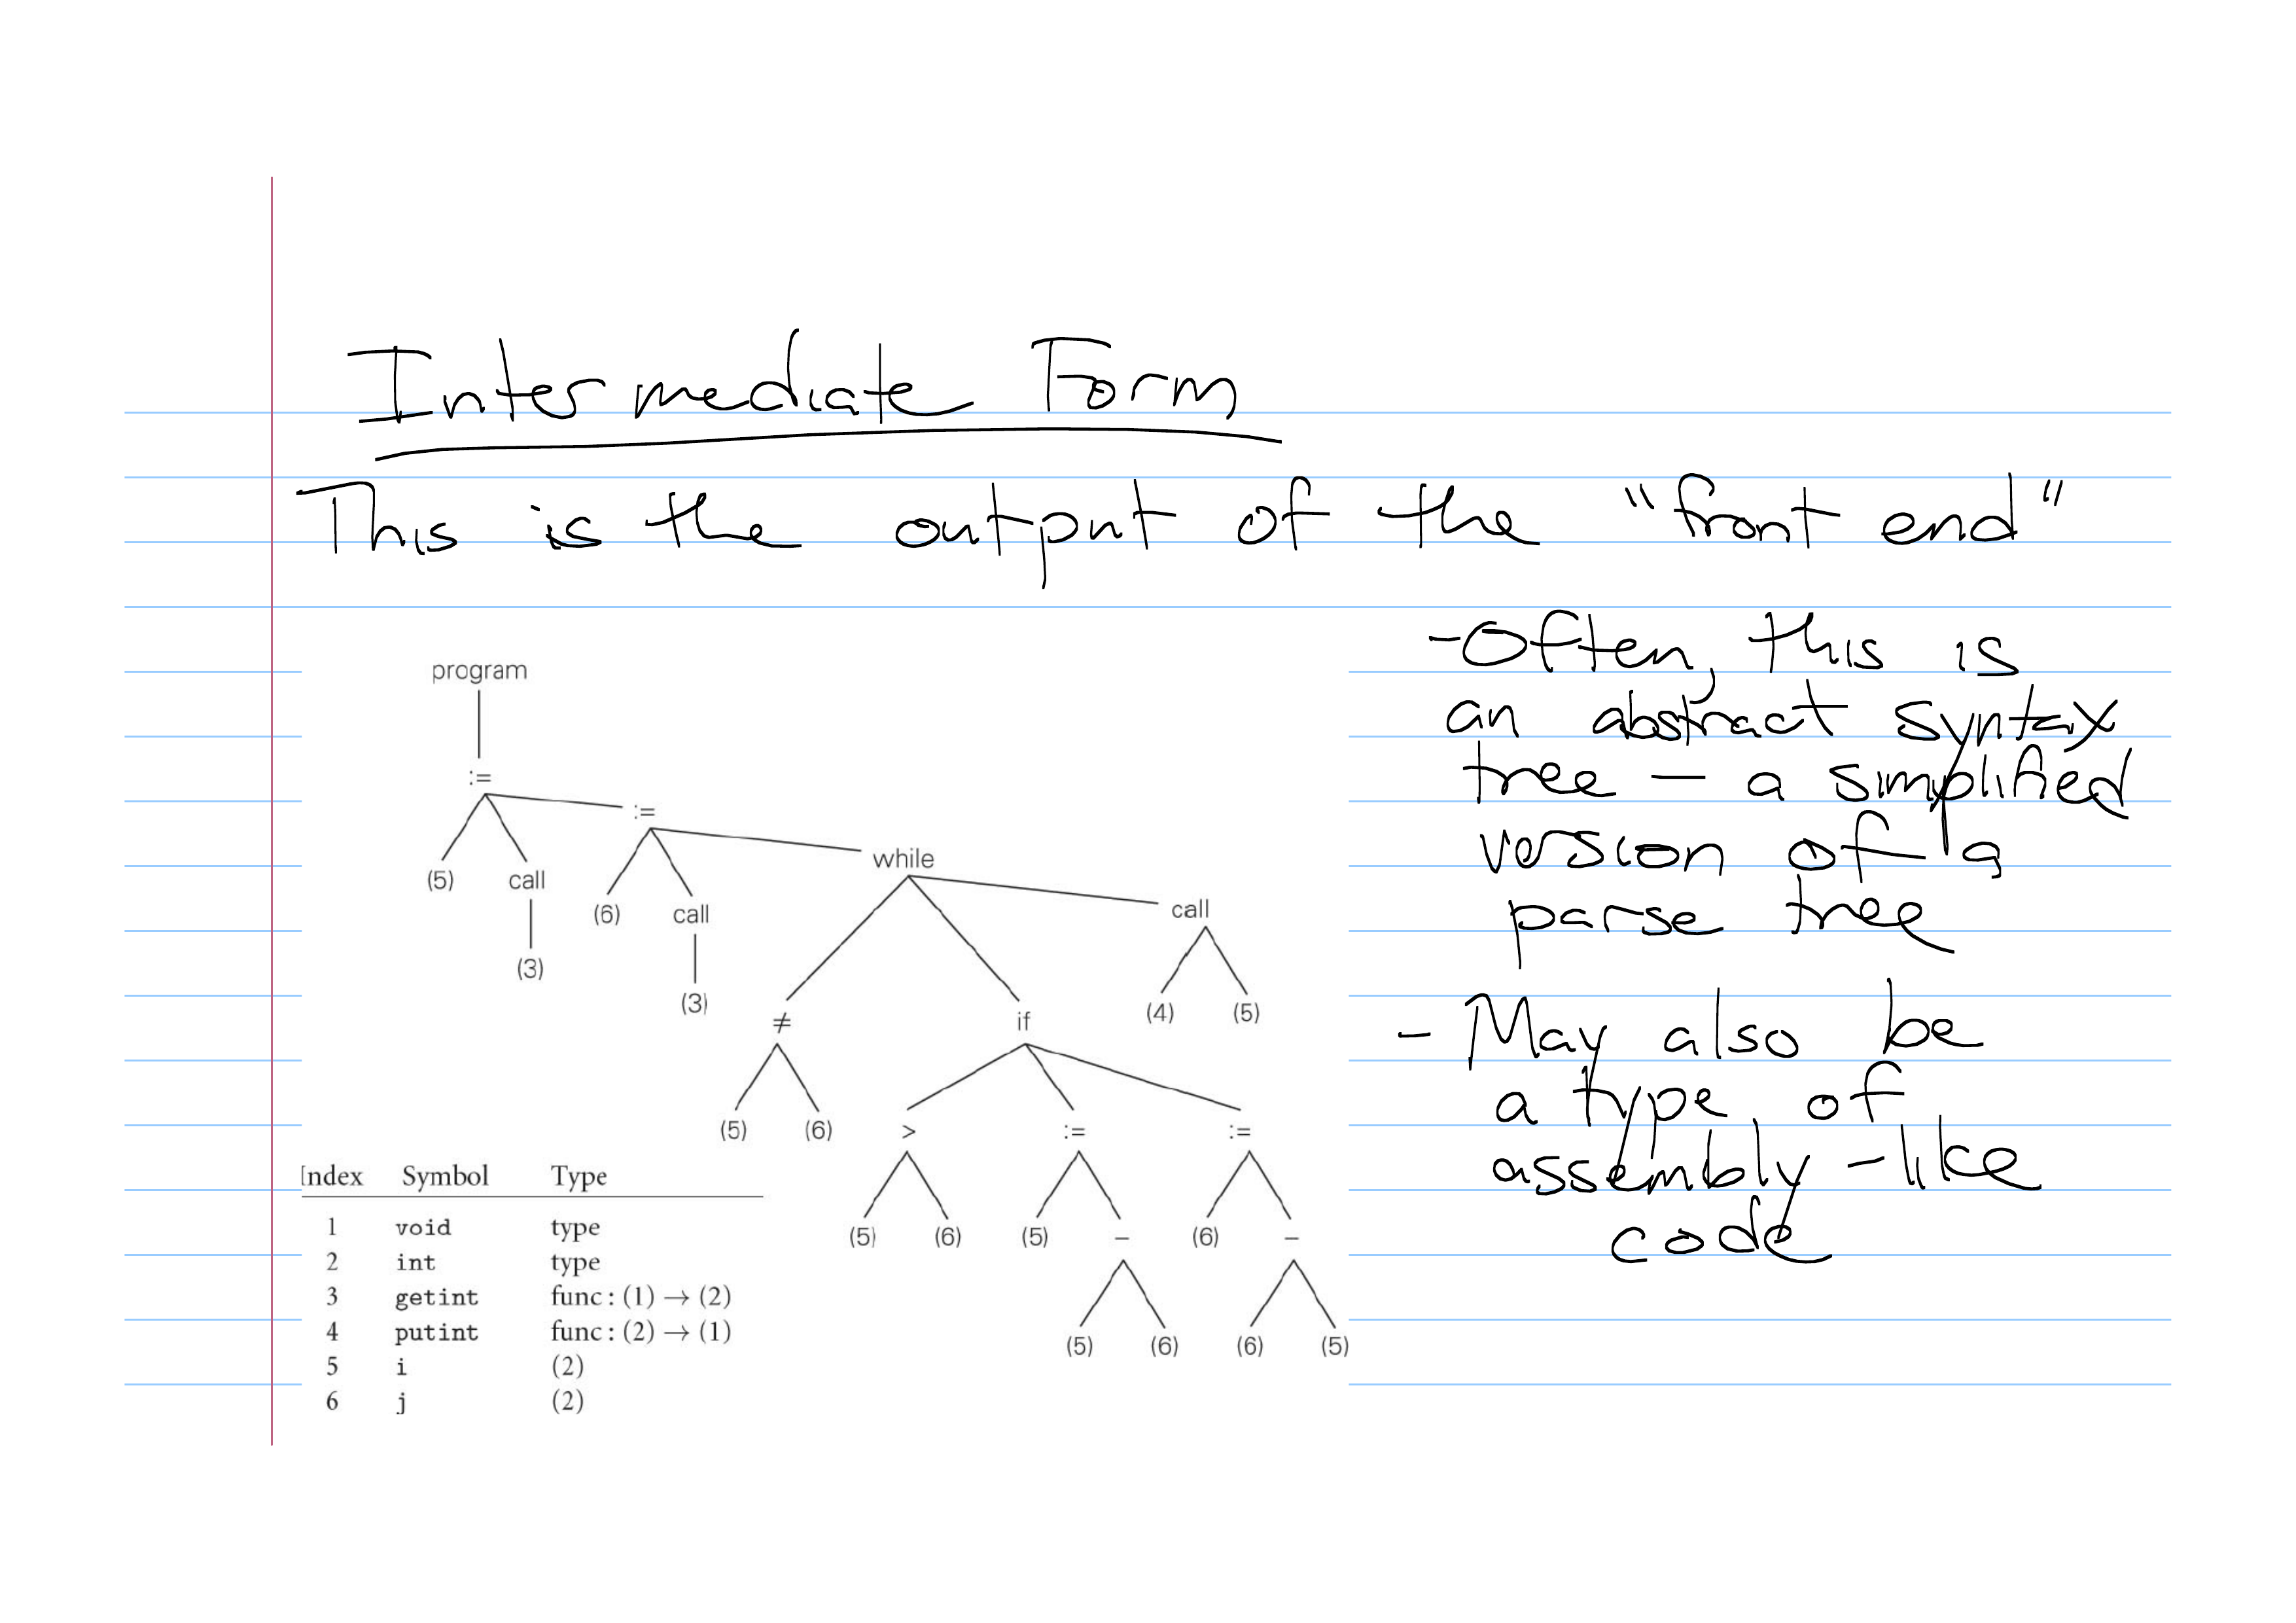 Intermediate Form
This is the output of the "front end"
-Often, this is
an abstract syntax
tree — a simplified
version of a
parse tree
- May also be
a type of
assembly-like
code
program
:=
:=
while
(5) call
(6) call
call
(3)
(3)
(4) (5)
≠ if
(5) (6) > := :=
(5) (6) (5) − (6) −
(5) (6) (6) (5)
Index Symbol Type
1 void type
2 int type
3 getint func : (1) → (2)
4 putint func : (2) → (1)
5 i (2)
6 j (2)